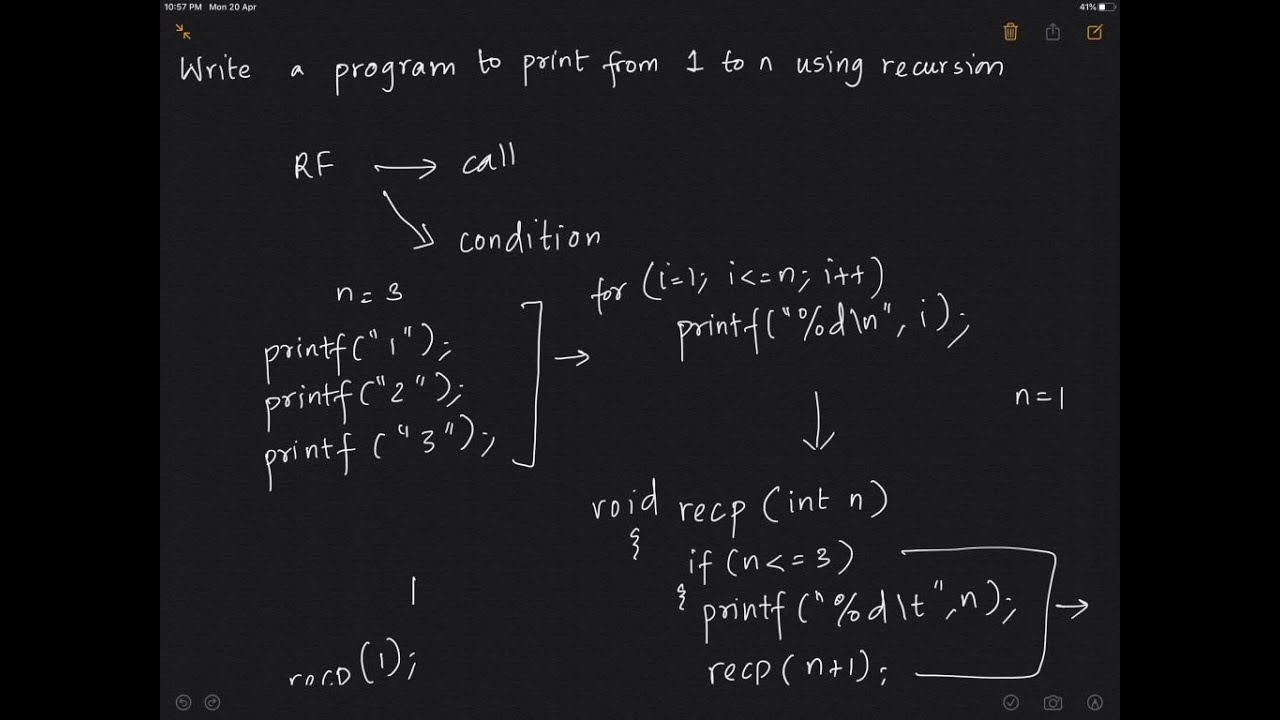 10:57 PM Mon 20 Apr
41%
Write a program to print from 1 to n using recursion
RF → call
condition
n = 3
printf("1");
printf("2");
printf("3");
for (i=1; i<=n; i++)
printf("%d\n", i);
n=1
void recp(int n)
{
if (n<=3)
{ printf("%d\t", n);
recp(n+1);
1
recp(1);